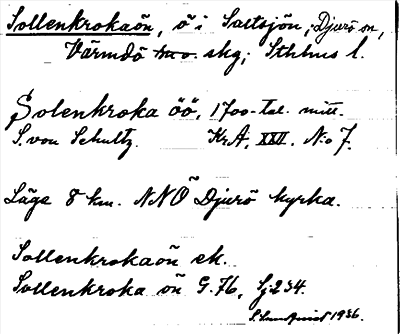 Sollenkrokaön, ö i Saltsjön, Djurö sn,
Värmdö skg; Sthlms l.
Solenkroka öö, 1700-tal. mitt.
S. von Schultz. KrA, XXII. No 7.
Läge 8 km. NNÖ Djurö kyrka.
Sollenkrokaön ek.
Sollenkroka ön G. 76, Sj 234.
S. Lundquist 1936.